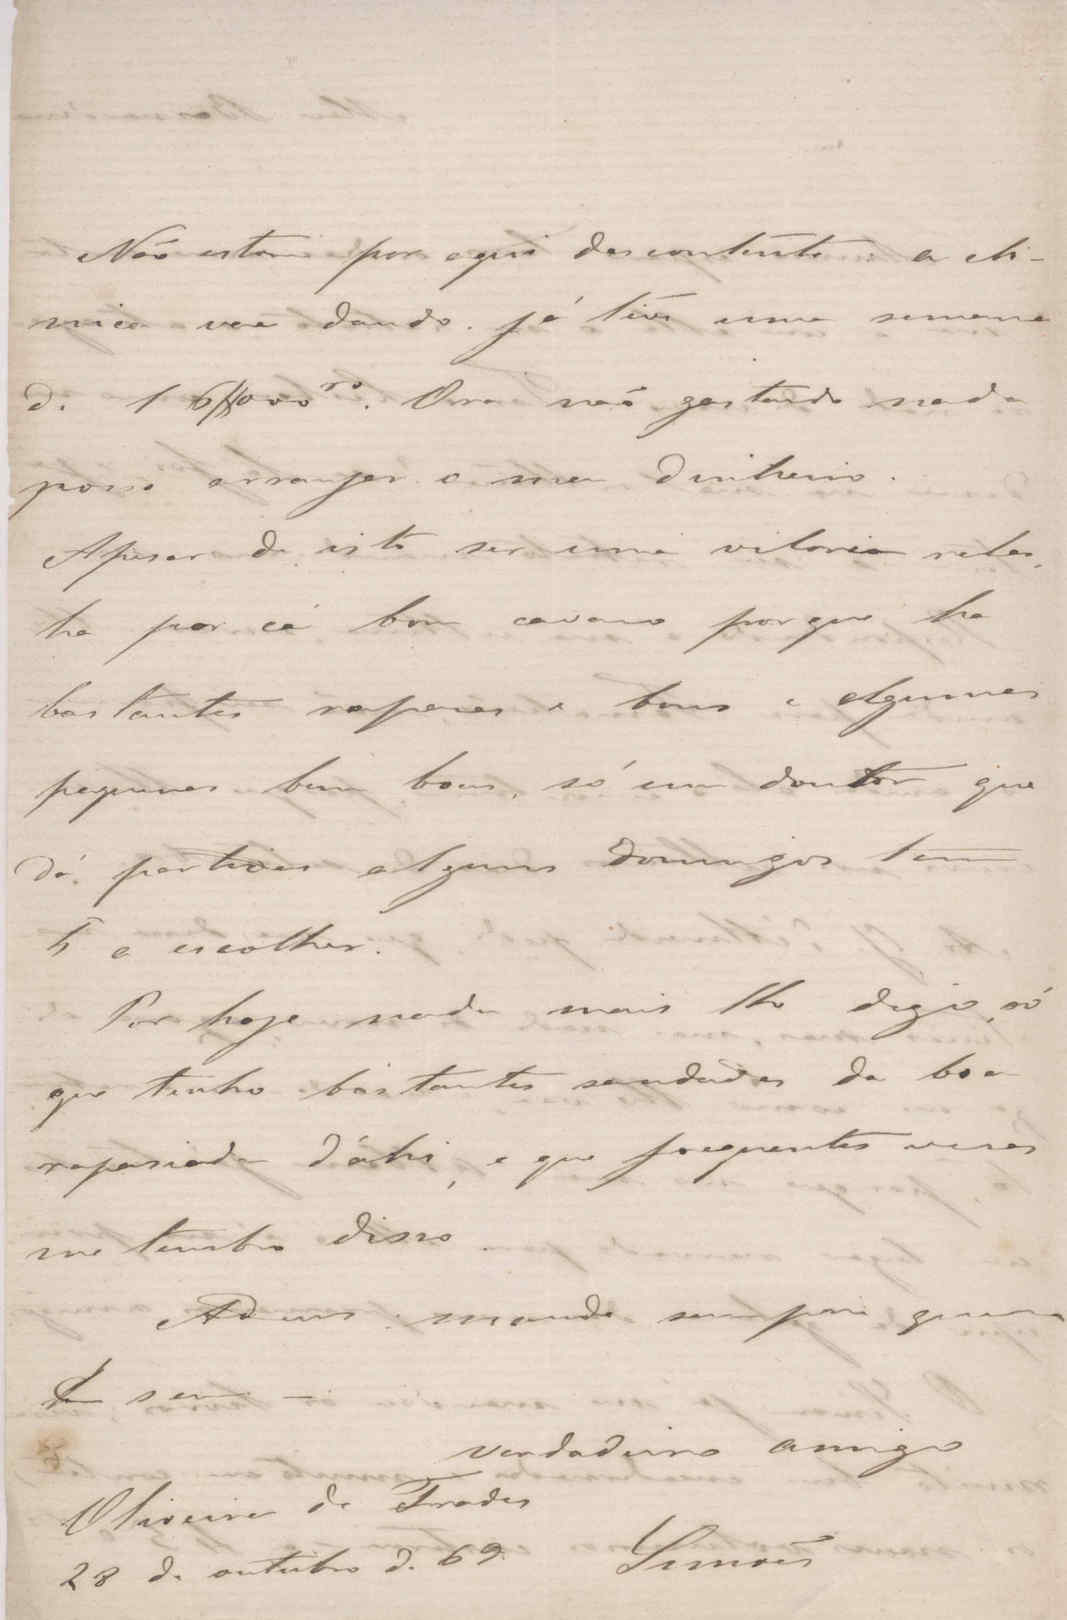 Não estou por aqui descontente: a cli-
nica vae dando. Já tive uma semana
de 16$000 rs. Ora não gastando nada
posso arranjar o meu dinheiro.
Apesar de isto ser uma reles,
ha por cá bom cavaco porque ha
bastantes rapazes e bons e algumas
pequenas bem boas, só um doutor que
dá partidas alguns domingos tem
5 a escolher.
Por hoje nada mais lhe digo, só
que tenho bastantes saudades da boa
rapasiada d'ahi, e que frequentes vezes
me lembro disso.
Adeus: mande sempre quem
é seu —
verdadeiro amigo
Oliveira de Frades
28 de outubro de 69. Simões